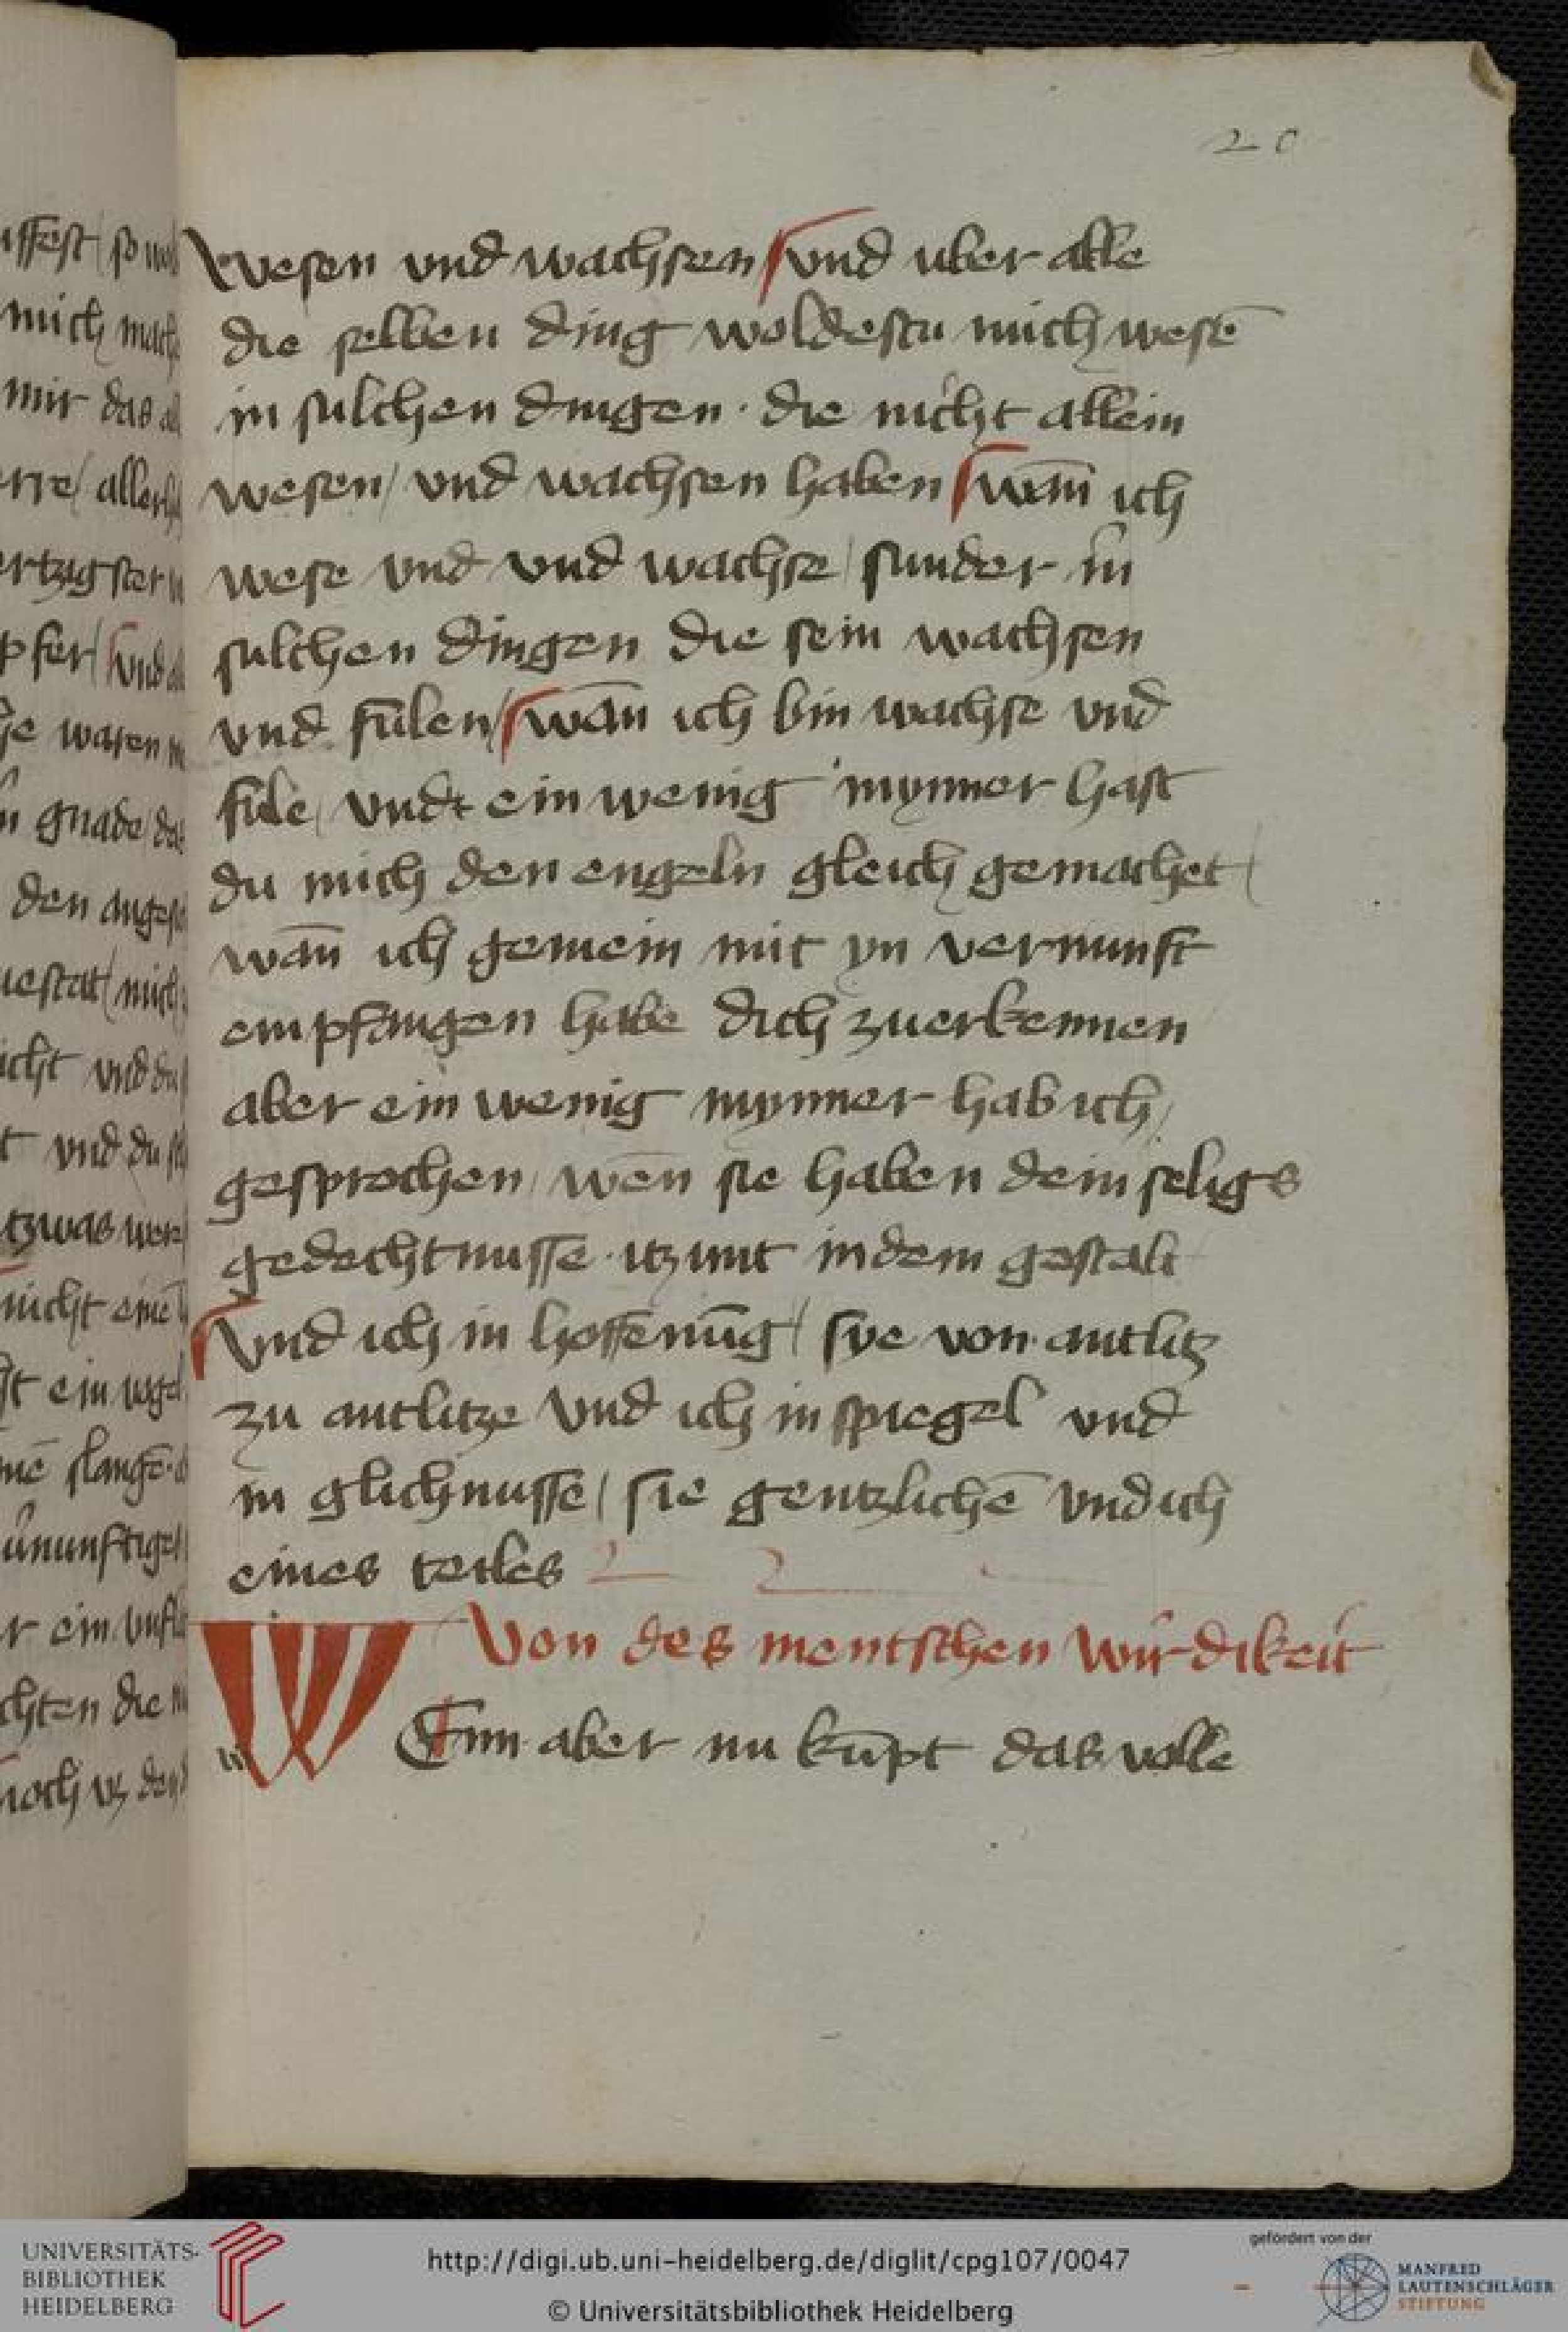 20
wesen vnd wachsen vnd uber alle
die selben ding woldestu mich wesē
in sulchen dingen · die nicht allein
wesen / vnd wachsen haben wān ich
wese vnd vnd wachse / sunder in
sulchen dingen die sein wachsen
vnd fulen / wān ich bin wachse vnd
fule / vnd ein wenig mynner hast
du mich den engeln gleich gemachet /
wān ich gemein mit yn vernunft
empfangen habe dich zuerkennen
aber ein wenig mynner hab ich /
gesprochen / wēn sie haben dein seligs
gedechtnusse · itzunt in dem gestalt
Vnd ich in hoffenūg / sye von antlitz
zu antlitze vnd ich in spiegel vnd
in glichnusse / sie gentzlichē vnd ich
eines teiles
Von des mentschen wirdikeit
WEnn aber nu kūpt das volle
UNIVERSITÄTS-
BIBLIOTHEK
HEIDELBERG
http://digi.ub.uni-heidelberg.de/diglit/cpg107/0047
© Universitätsbibliothek Heidelberg
gefördert von der
MANFRED
LAUTENSCHLÄGER
STIFTUNG